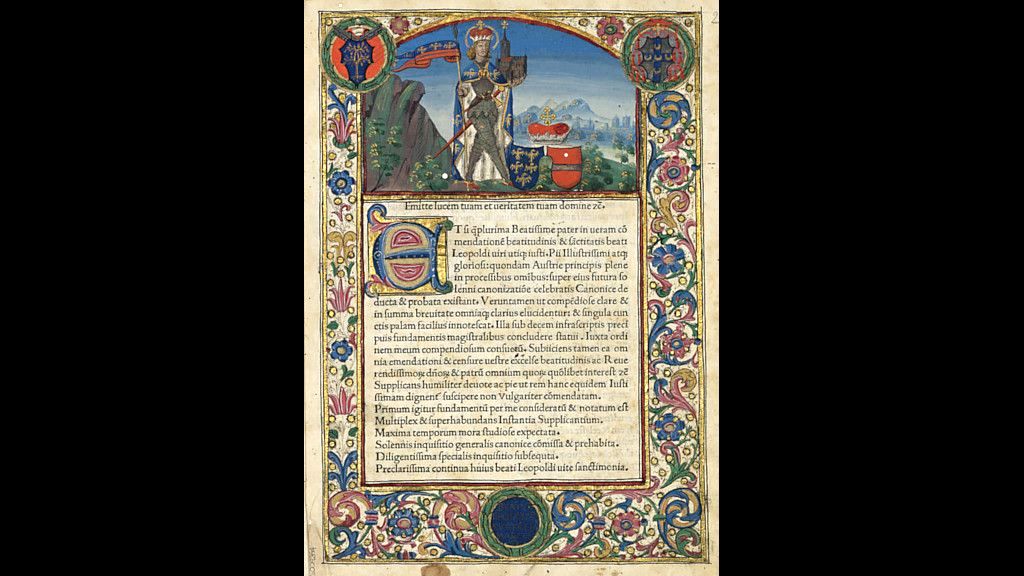 Emitte lucem tuam et ueritatem tuam domine ⁊č.
ET si q̃plurima Beatissime pater in ueram cō
mendationē beatitudinis & sāctitatis beati
Leopoldi uiri utiq; iusti. Pii Illustrissimi atq;
gloriosi: quondam Austrie principis plene
in processibus omībus: super eius futura so
lenni canonizatiōe celebratis Canonice de
ducta & probata existant. Veruntamen ut compēdiose clare &
in summa breuitate omniaq; clarius elucidentur: & singula cun
ctis palam facilius innotescat. Illa sub decem infrascriptis preci
puis fundamentis magistralibus concludere statui. Iuxta ordi
nem meum compendiosum consuetū. Subiiciens tamen ea om
nia emendationi & censure uestre excelse beatitudinis ac Reue
rendissimoꝝ dn̄oꝝ & patrū omnium quoꝝ quōlibet interest ⁊č
Supplicans humiliter deuote ac pie ut rem hanc equidem Iusti
ssimam dignent᷑ suscipere non Vulgariter cōmendatam.
Primum igitur fundamentū per me consideratū & notatum est
Multiplex & superhabundans Instantia Supplicantium.
Maxima temporum mora studiose expectata.
Solennis inquisitio generalis canonice cōmissa & prehabita.
Diligentissima specialis inquisitio subsequta.
Preclarissima continua huius beati Leopoldi uite sanctimonia.